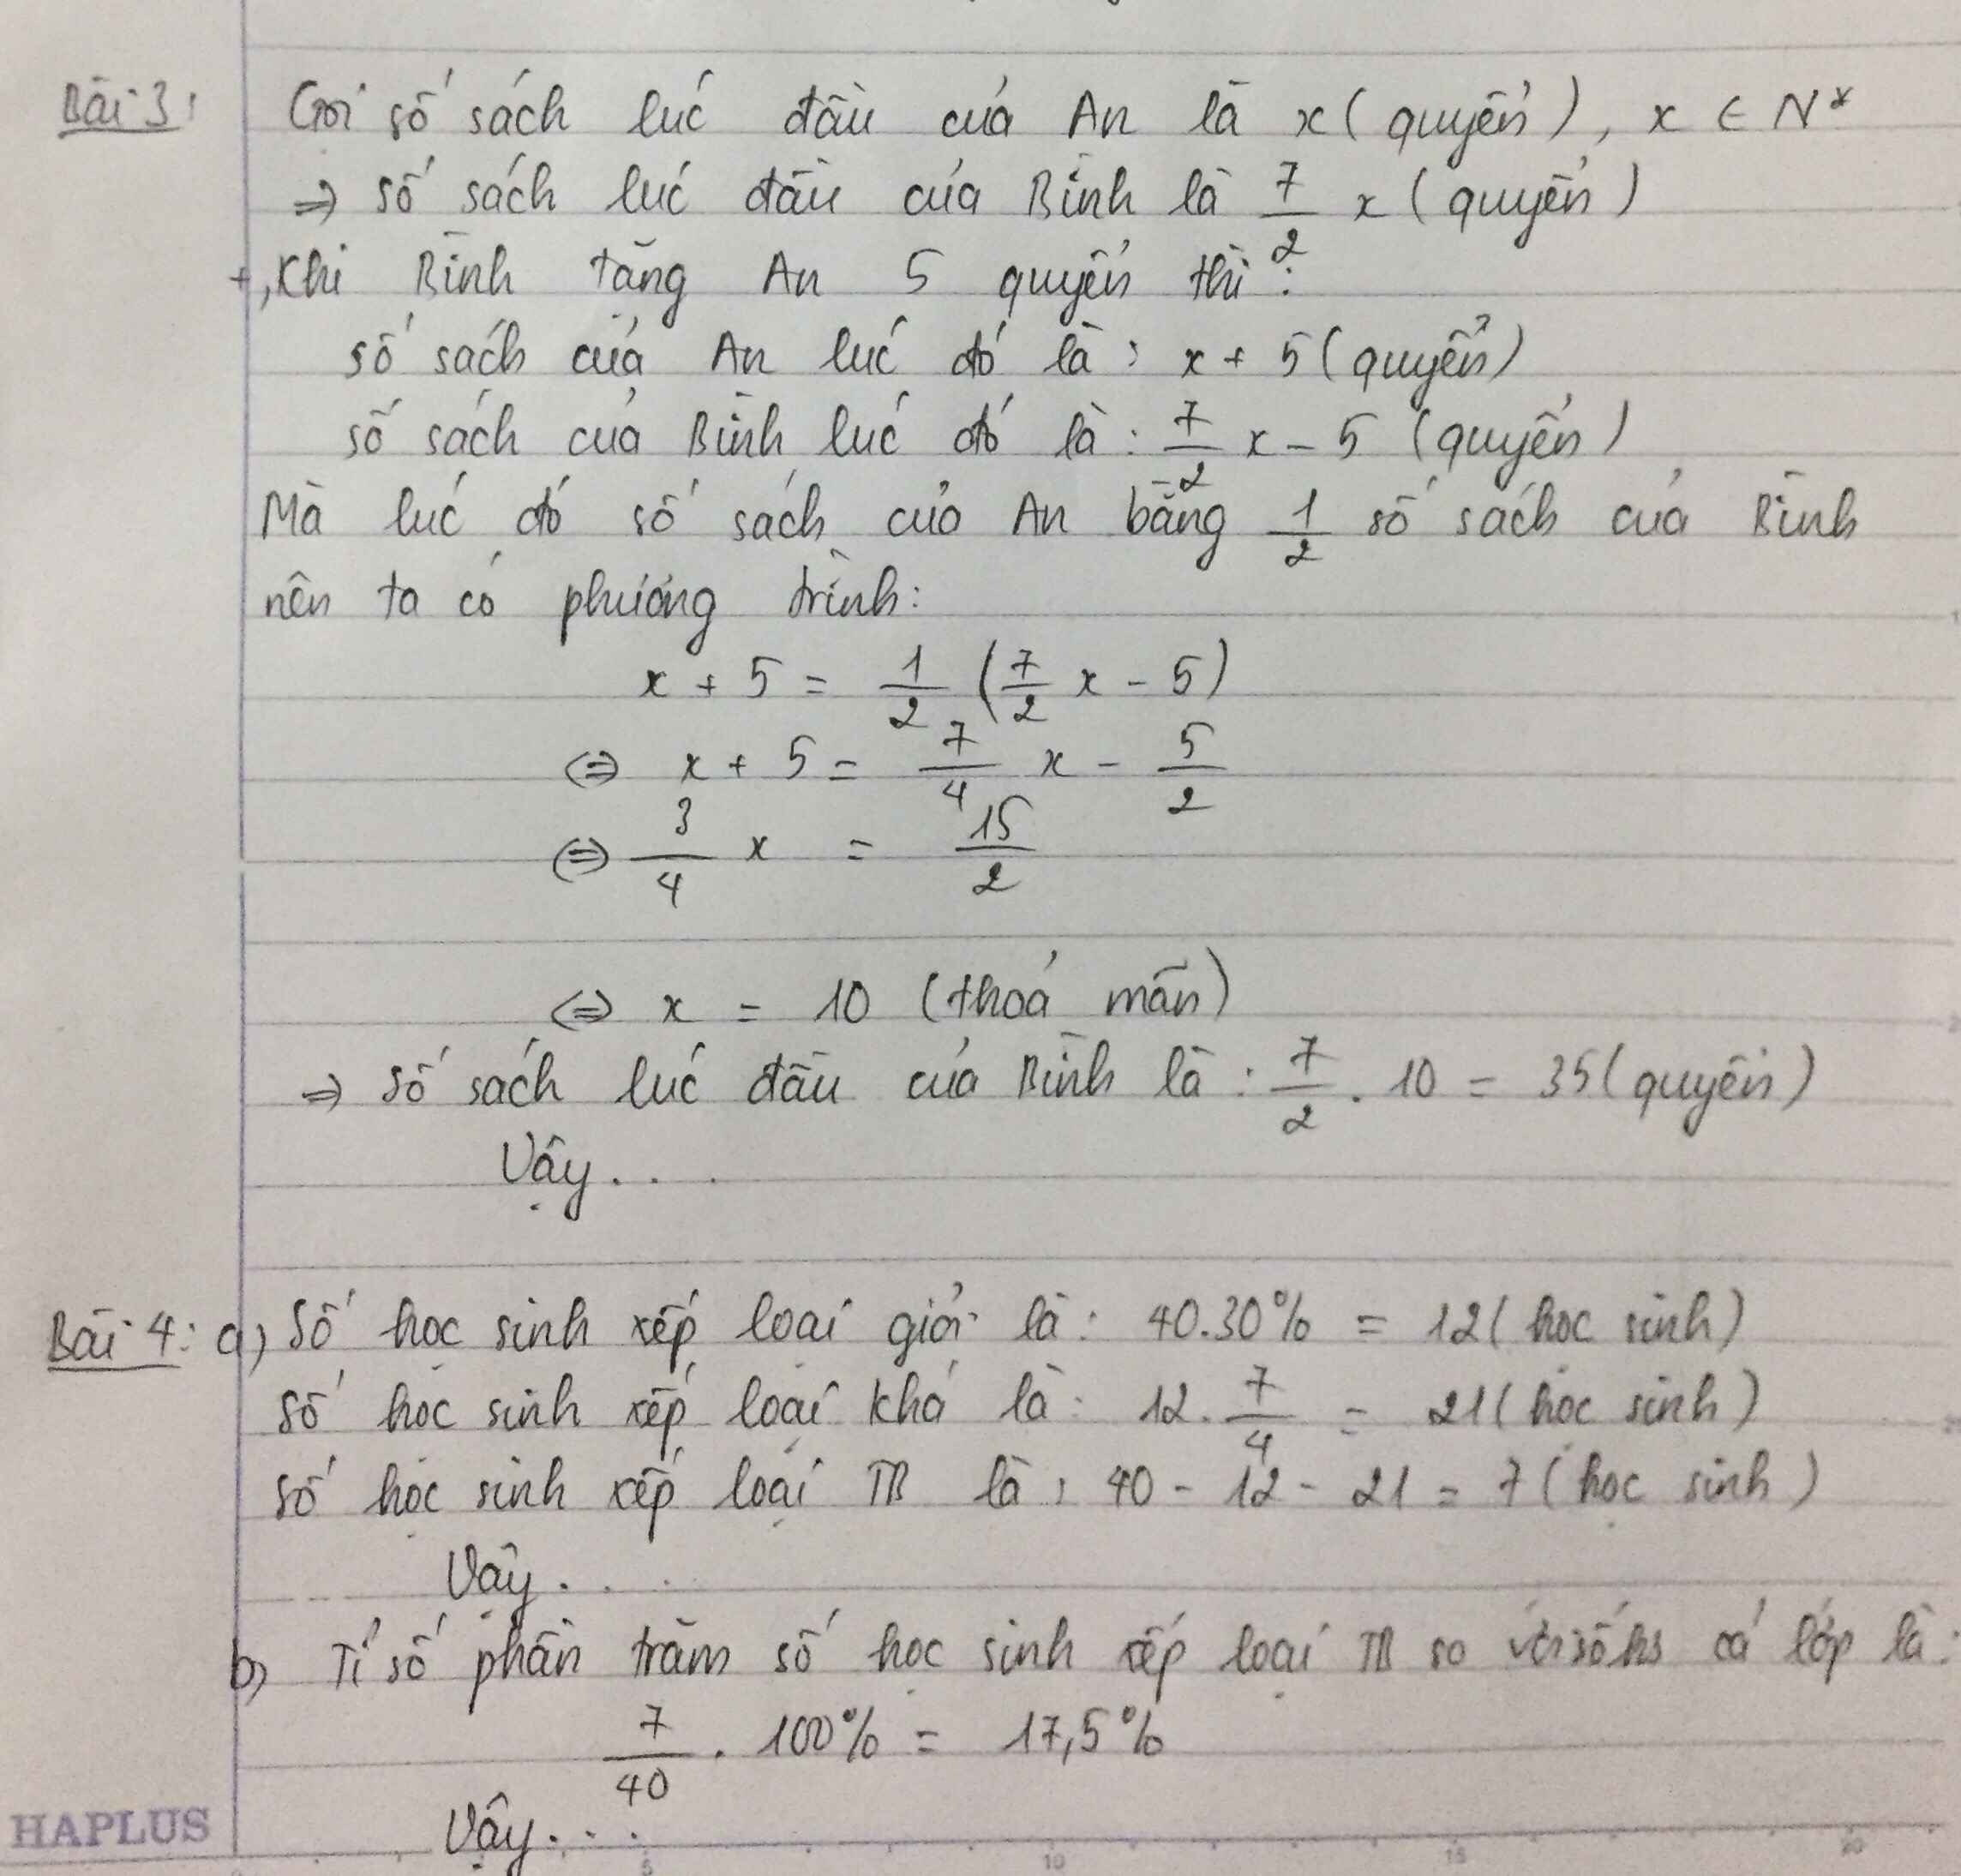 Bài 3: Gọi số sách lúc đầu của An là x (quyển), x ∈ N*
⇒ số sách lúc đầu của Bình là 7/2 x (quyển)
+, Khi Bình tặng An 5 quyển thì:
số sách của An lúc đó là: x + 5 (quyển)
số sách của Bình lúc đó là: 7/2 x - 5 (quyển)
Mà lúc đó số sách của An bằng 1/2 số sách của Bình
nên ta có phương trình:
x + 5 = 1/2 (7/2 x - 5)
⇔ x + 5 = 7/4 x - 5/2
⇔ 3/4 x = 15/2
⇔ x = 10 (thoả mãn)
⇒ số sách lúc đầu của Bình là: 7/2 . 10 = 35 (quyển)
Vậy...
Bài 4: a) Số học sinh xếp loại giỏi là: 40.30% = 12 (học sinh)
Số học sinh xếp loại khá là: 12 . 7/4 = 21 (học sinh)
Số học sinh xếp loại TB là: 40 - 12 - 21 = 7 (học sinh)
Vậy...
b) Tỉ số phần trăm số học sinh xếp loại TB so với số hs cả lớp là:
7/40 . 100% = 17,5%
Vậy...
HAPLUS
5 10 15 20